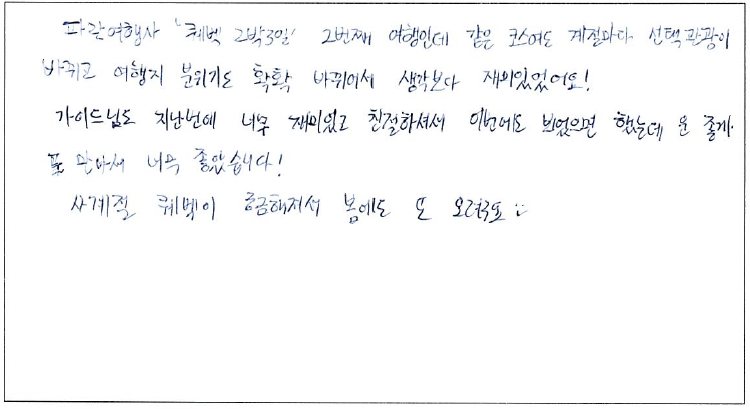 파란여행사 '퀘벡 2박3일' 2번째 여행인데 같은 코스여도 계절마다 선택관광이
바뀌고 여행지 분위기도 확확 바뀌어서 생각보다 재미있었어요!
가이드님도 지난번에 너무 재미있고 친절하셔서 이번에도 뵈었으면 했는데 운 좋게
또 만나서 너무 좋았습니다!
사계절 퀘벡이 궁금해져서 봄에도 또 오려구요 :)